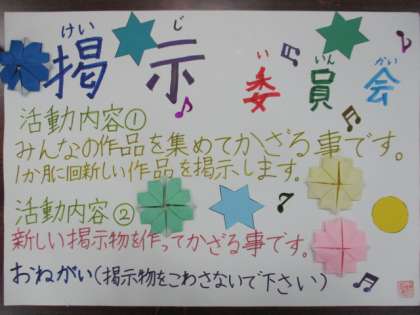 けい じ い いん かい
掲示委員会
活動内容①
みんなの作品を集めてかざる事です。
1か月に1回新しい作品を掲示します。
活動内容②
新しい掲示物を作ってかざる事です。
おねがい(掲示物をこわさないで下さい)